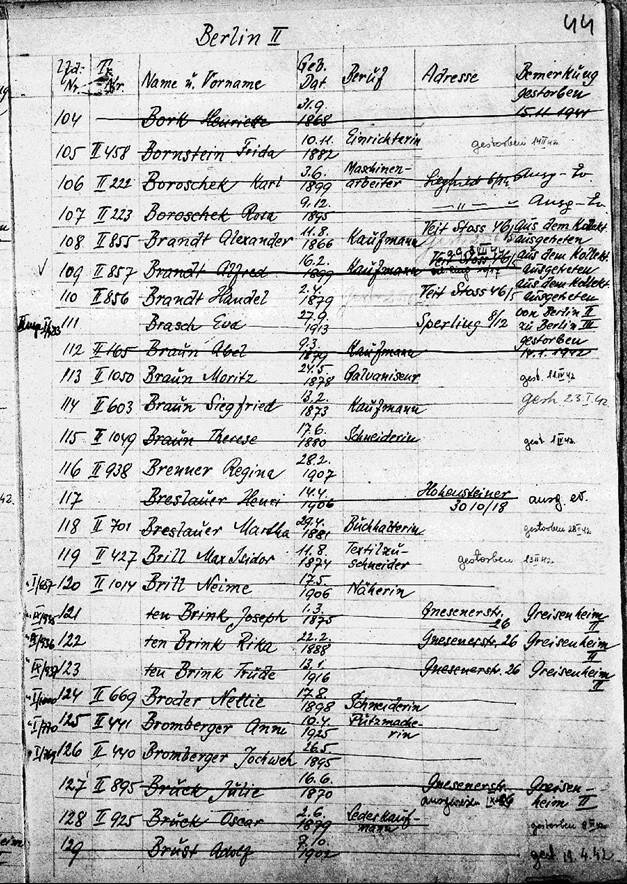 44
Berlin II
Lfd. Nr. Tr. Nr. Name u. Vorname Geb. Dat. Beruf Adresse Bemerkung
104 Bork Henriette 1868 gestorben 15.11.1941
105 II 458 Bornstein Frida 10.11. 1882 Einrichterin gestorben
106 II 222 Boroschek Karl 3.6. 1899 Maschinen-arbeiter Ausg-
107 II 223 Boroschek Rosa 9.12. 1895 - " - Ausg-
108 II 855 Brandt Alexander 11.8. 1866 Kaufmann Veit Stoss 46/5 aus dem Kollekt. ausgebeten
109 II 857 Brandt Alfred 16.2. 1899 Kaufmann Veit Stoss 46/5 aus dem Kollekt. ausgebeten
110 II 856 Brandt Handel 2.4. 1879 Veit Stoss 46/5 aus dem Kollekt. ausgebeten
111 Brasch Eva 27.9. 1913 Sperling 8/12 von Berlin II zu Berlin III
112 II 165 Braun Abel 9.3. 1879 Kaufmann gestorben 1942
113 II 1050 Braun Moritz 24.5. 1878 Galvaniseur gest.
114 II 603 Braun Siegfried 13.2. 1873 Kaufmann gest. 23 I. 42
115 II 1049 Braun Therese 17.6. 1880 Schneiderin gest.
116 II 938 Brenner Regina 28.2. 1907
117 Breslauer Henri 14.4. 1906 Hohensteiner 30 10/18 ausg.
118 II 701 Breslauer Martha 29.4. 1881 Buchhalterin gestorben
119 II 427 Brill Max Isidor 11.8. 1874 Textilzu-schneider gestorben
120 II 1014 Brill Neime 17.5. 1906 Näherin
121 ten Brink Joseph 1.3. 1875 Gnesenerstr. 26 Greisenheim II
122 ten Brink Rika 22.2. 1888 Gnesenerstr. 26 Greisenheim II
123 ten Brink Trude 13.1. 1916 Gnesenerstr. 26 Greisenheim II
124 II 669 Broder Nellie 17.8. 1898 Schneiderin
125 II 441 Bromberger Anni 10.4. 1925 Putzmache-rin
126 II 440 Bromberger Jochweh 26.5. 1895
127 II 895 Bruck Julie 16.6. 1870 Gnesenerstr. Greisen-heim II
128 II 925 Bruck Oscar 2.6. 1879 Lederkauf-mann gestorben
129 Brust Adolf 1902 gest. 19.4.42